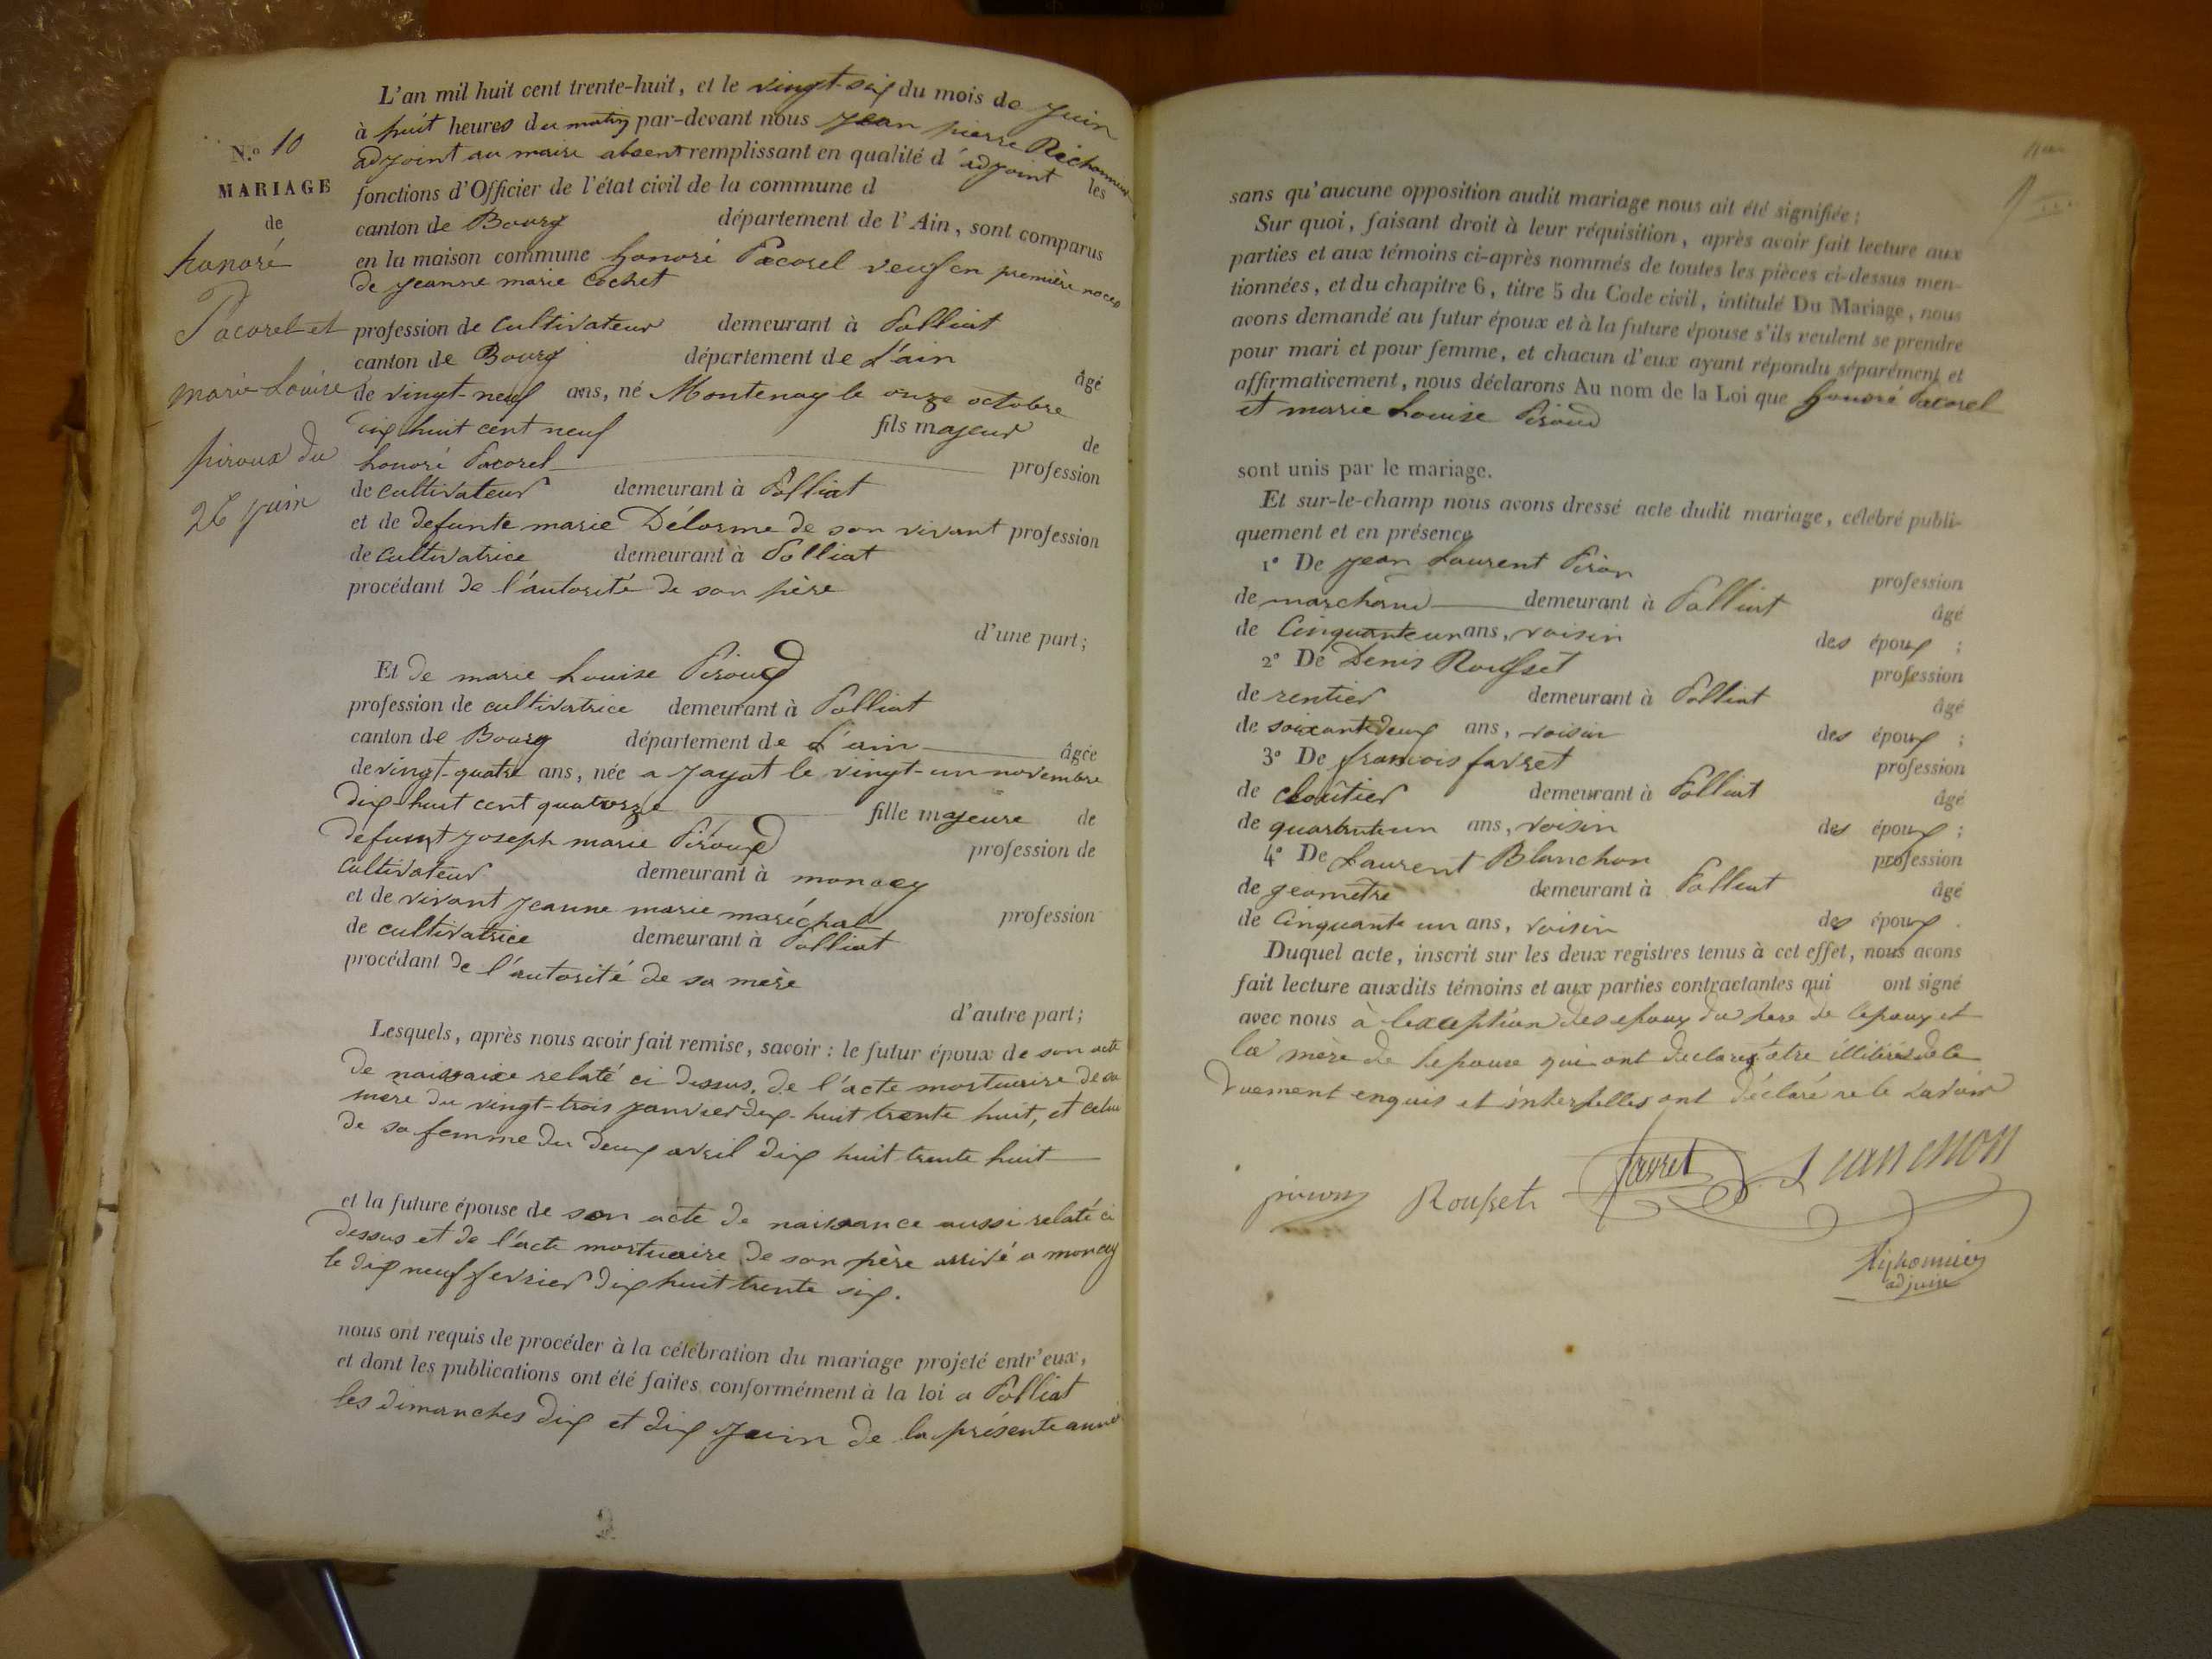 L'an mil huit cent trente-huit, et le vingt-six du mois de juin
à huit heures du matin par-devant nous jean pierre Richonnier
adjoint au maire absent remplissant en qualité d'adjoint les
fonctions d'Officier de l'état civil de la commune d
canton de Bourg département de l'Ain, sont comparus
en la maison commune honoré Pacorel veuf en première noces
de jeanne marie Cochet
profession de Cultivateur demeurant à Polliat
canton de Bourg département de L'ain âgé
de vingt-neuf ans, né Montenay le onze octobre
dix huit cent neuf fils majeur de
honoré Pacorel profession
de Cultivateur demeurant à Polliat
et de defunte marie Délorme de son vivant profession
de Cultivatrice demeurant à Polliat
procédant de l'autorité de son père
d'une part;
Et de marie Louise Piroud
profession de cultivatrice demeurant à Polliat
canton de Bourg département de L'ain âgée
de vingt-quatre ans, née a jayat le vingt-un novembre
dix-huit cent quatorze fille majeure de
défunt joseph marie Piroud profession de
Cultivateur demeurant à
et de vivant jeanne marie maréchal profession
de cultivatrice demeurant à Polliat
procédant de l'autorité de sa mère
d'autre part;
Lesquels, après nous avoir fait remise, savoir : le futur époux de son acte
de naissaixe relaté ci dessus, de l'acte mortuaire de sa
mère du vingt-trois janvier dix-huit trente huit, et celui
de sa femme du deux avril dix huit trente huit
et la future épouse de son acte de naissance aussi relaté ci
dessus et de l'acte mortuaire de son père arrivé a
le dix neuf fevrier dix huit trente six.
nous ont requis de procéder à la célébration du mariage projeté entr'eux,
et dont les publications ont été faites conformément à la loi a Polliat
les dimanches dix et dix juin de la présente année
N.º 10
MARIAGE
de
honoré
Pacorel et
marie Louise
piroux du
26 juin
sans qu'aucune opposition audit mariage nous ait été signifiée;
Sur quoi, faisant droit à leur réquisition, après avoir fait lecture aux
parties et aux témoins ci-après nommés de toutes les pièces ci-dessus men-
tionnées, et du chapitre 6, titre 5 du Code civil, intitulé Du Mariage, nous
avons demandé au futur époux et à la future épouse s'ils veulent se prendre
pour mari et pour femme, et chacun d'eux ayant répondu séparément et
affirmativement, nous déclarons Au nom de la Loi que honoré Pacorel
et marie Louise Piroud
sont unis par le mariage.
Et sur-le-champ nous avons dressé acte dudit mariage, célébré publi-
quement et en présence
1º De jean Laurent Piron profession
de marchand demeurant à Polliat âgé
de Cinquante un ans, voisin des époux ;
2º De Denis Rousset profession
de rentier demeurant à Polliat âgé
de soixante deux ans, voisin des époux ;
3º De francois favret profession
de cloûtier demeurant à Polliat âgé
de quarante un ans, voisin des époux ;
4º De Laurent Blanchon profession
de geomètre demeurant à Polliat âgé
de Cinquante un ans, voisin des époux
Duquel acte, inscrit sur les deux registres tenus à cet effet, nous avons
fait lecture auxdits témoins et aux parties contractantes qui ont signé
avec nous à lexception des epoux du pere de l'epoux et
la mère de l'epouse qui ont declarés être illitérés de ce
duement enquis et interpellés ont déclaré ne le savoir
Rousset favret
adjoint